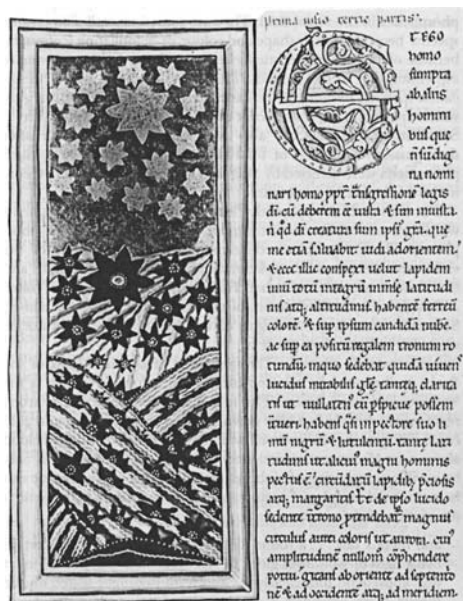 Prima uisio tercie partis:
ET EGO
homo
sumpta
ab aliis
homini
bus que
n̄ sū dig
na nomi
nari homo ppt̄ t̄nsgressione legis
di. cū deberem ēē iusta & sim iniusta.
n̄ qd̄ di creatura sum ipsi' grā. que
me etiā saluabit. uidi ad orientem.
& ecce illic conspexi uelut lapidem
unū totū integrū inmse latitudi
nis atq; altitudinis. habentē ferreū
colorē. & sup ipsum candidā nubē.
ac sup eā positū regalem tronum ro
tundū. in quo sedebat quidā uiuens
lucidus mirabilis glē. tanteq; clarita
tis ut nullaten' eū pspicue possem
intueri. habens q̄si in pectore suo li
mū nigrū & lutulentū. tantę lati
tudinis ut alicui' magni hominis
pectus ē. circūdatū lapidib; pciosis
atq; margaritis. Et de ipso lucido
sedente in trono ptendebat̄ magnus
circulus aurei coloris ut aurora. cui'
amplitudinē nullom̄ cōphendere
potui. girans ab oriente ad septent'o
nē & ad occidentē atq; ad meridiem.